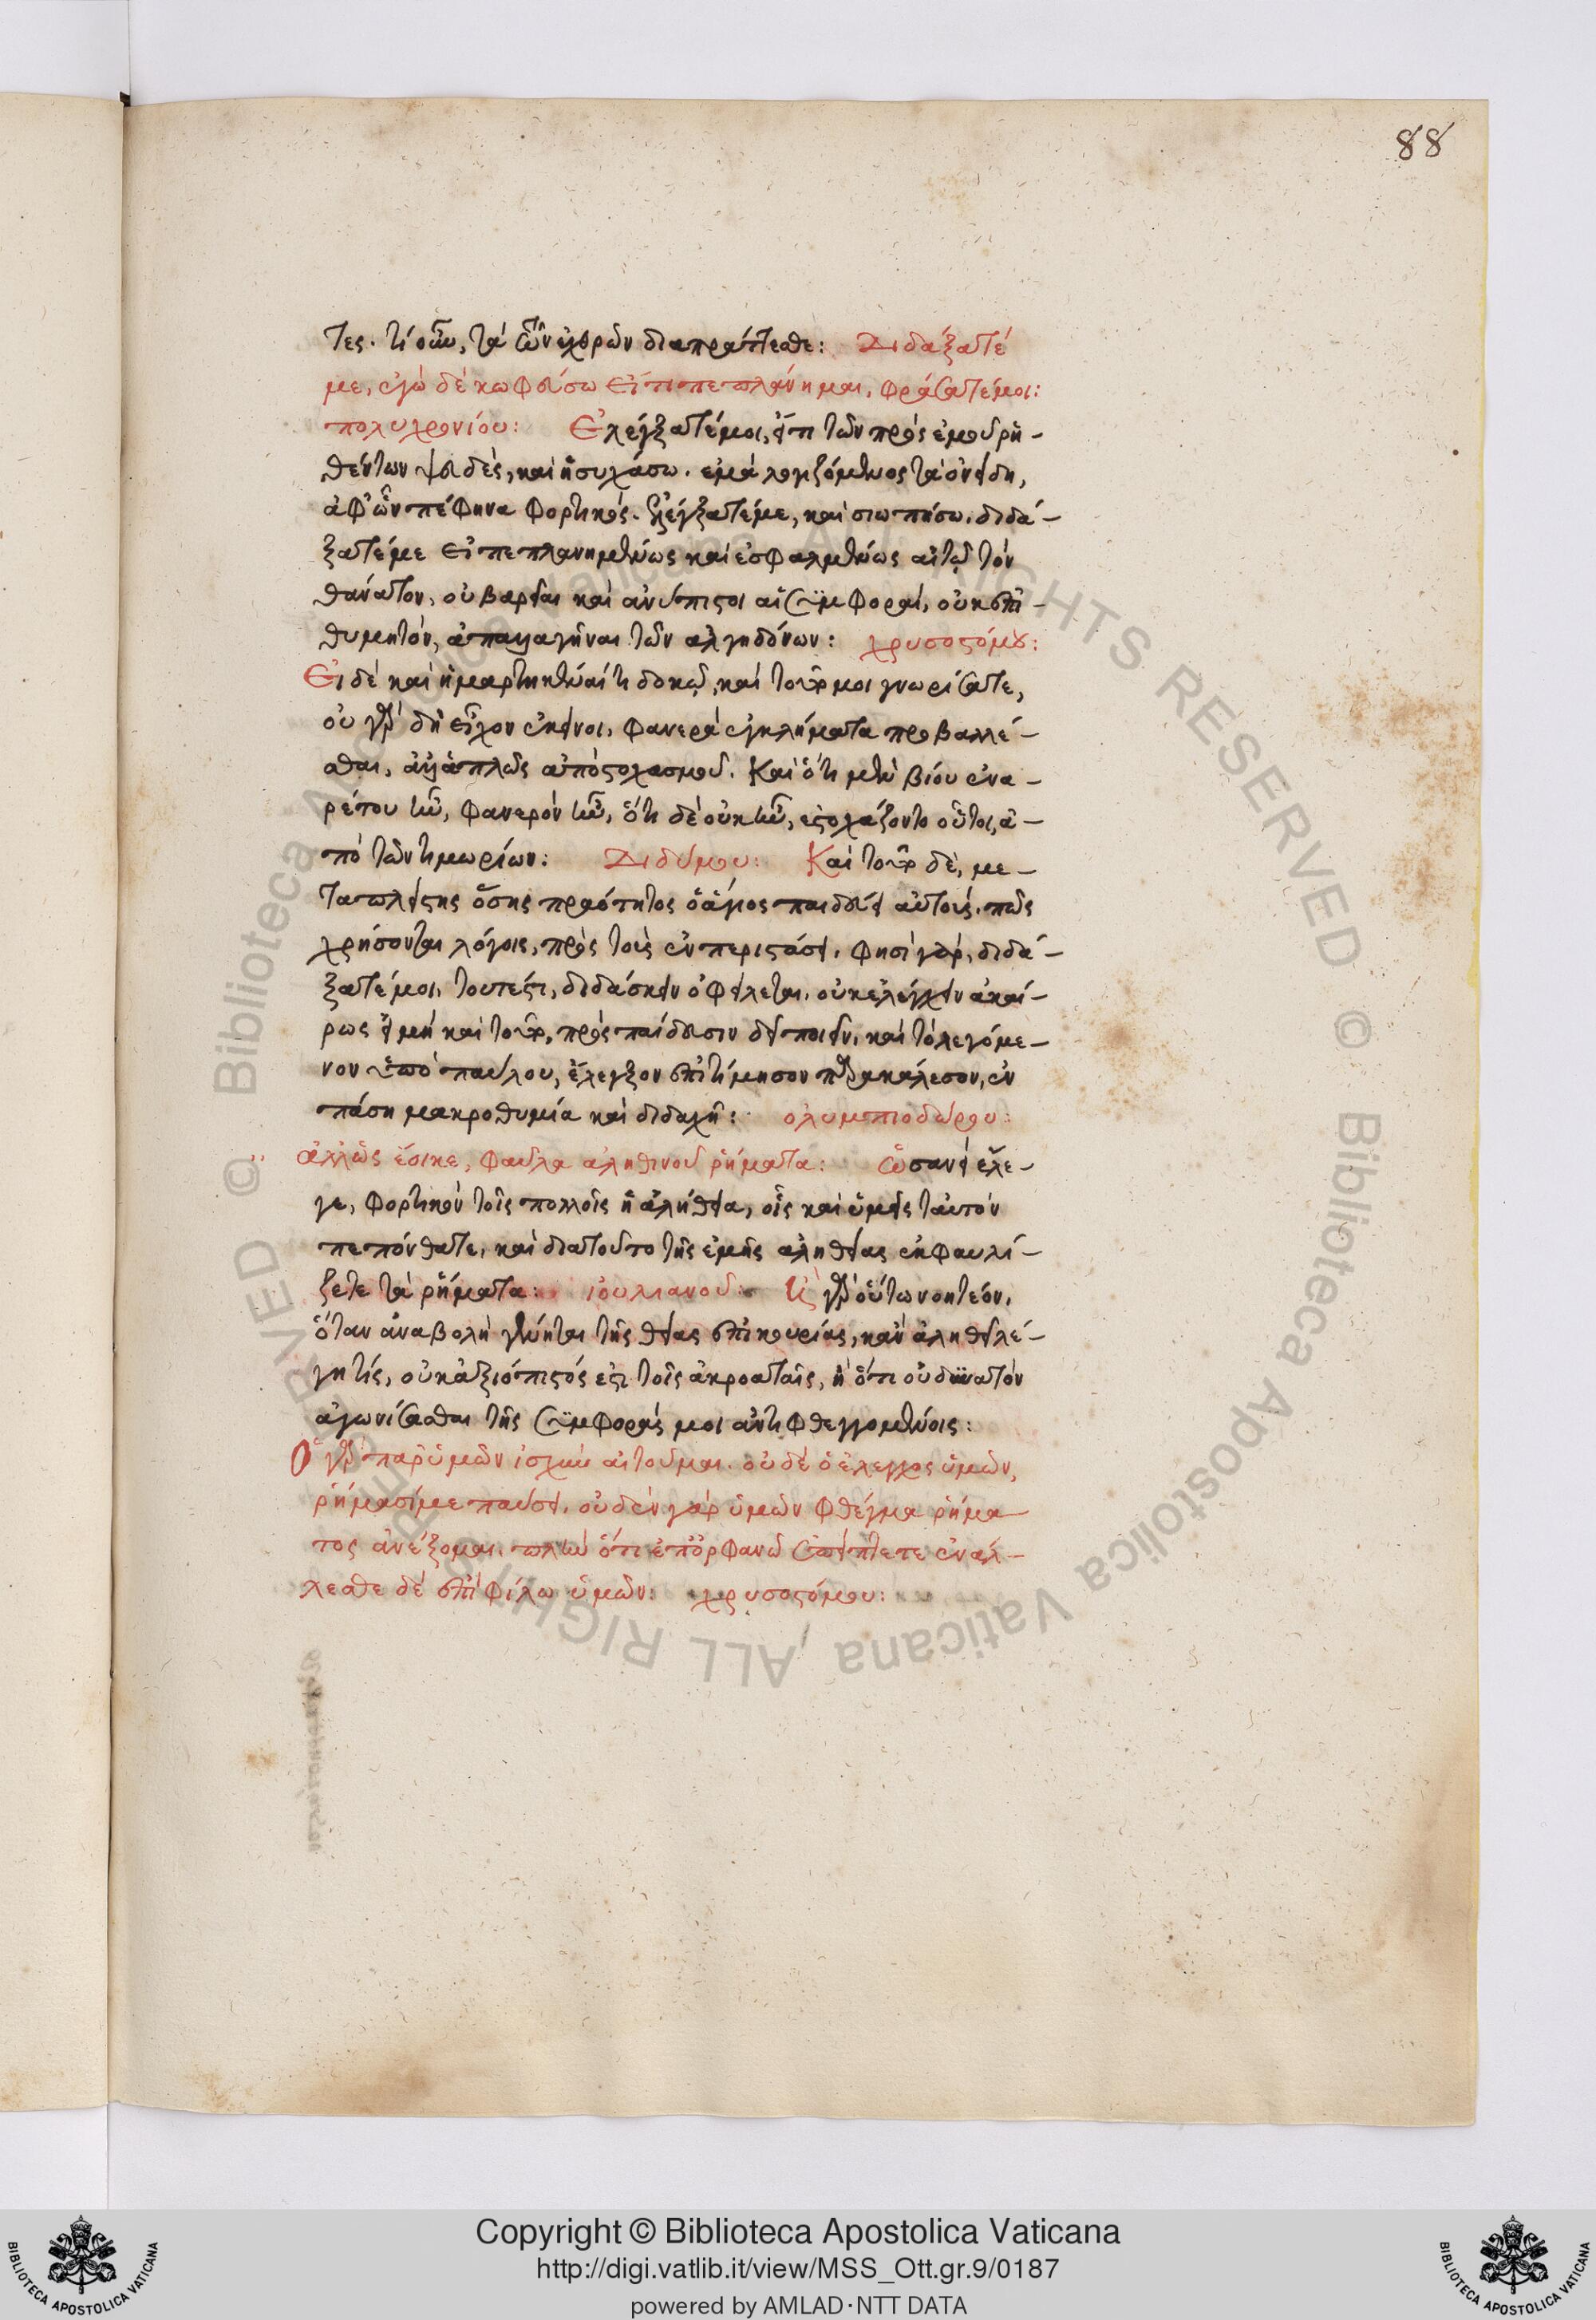 88
τες. τί οὖν, τὰ τῶν ἐχθρῶν διαπράττεσθε: Διδάξατέ
με, ἐγὼ δὲ κωφεύσω εἴ τι πεπλάνημαι, φράσατέ μοι:
πολυχρονίου: Ἐλέγξατέ μοι, εἴ τι τῶν πρὸς ἐμοῦ ῥη-
θέντων ψευδὲς, καὶ ἡσυχάσω. ἐμὰ λογιζόμενος τὰ ὀνείδη,
ἀφ' ὧν πέφηνα φορτικός. ἐλέγξατέ με, καὶ σιωπήσω. διδά-
ξατέ με εἰ πεπλανημένως καὶ ἐσφαλμένως αἰτῶ τὸν
θάνατον, οὐ βαρεῖαι καὶ ἀνύποιστοι αἱ συμφοραί, οὐκ ἐπι-
θυμητόν, ἀπαλλαγῆναι τῶν ἀλγηδόνων: χρυσοστόμου:
Εἰ δὲ καὶ ἡμαρτηκέναι τι δοκῶ, καὶ τοῦτό μοι γνωρίσατε,
οὐ γὰρ δὴ εἶχον ἐκεῖνοι, φανερὰ ἐγκλήματα προβαλλέ-
σθαι, ἀλλ' ἁπλῶς ἀπὸ στοχασμοῦ. Καὶ ὅτι μὲν βίου ἐνα-
ρέτου ἦν, φανερὸν ἦν, ὅτι δὲ οὐκ ἦν, ἐστοχάζοντο οὗτοι, ἀ-
πὸ τῶν τιμωριῶν: Διδύμου: Καὶ τοῦτο δὲ, με-
τὰ πλείστης ὅσης πραότητος ὁ ἅγιος παιδεύει αὐτούς. πῶς
χρήσονται λόγοις, πρὸς τοὺς ἐν περιστάσει. φησὶ γὰρ, διδά-
ξατέ μοι, τουτέστι, διδάσκειν ὀφείλεται, οὐκ ἐλέγχειν ἀκαί-
ρως εἰ μὴ καὶ τοῦτο, πρὸς παίδευσιν δεῖ ποιεῖν, καὶ τὸ λεγόμε-
νον ὑπὸ παύλου, ἔλεγξον ἐπιτίμησον παρακάλεσον, ἐν
πάσῃ μακροθυμίᾳ καὶ διδαχῇ: ολυμπιοδώρου:
ἀλλ' ὡς ἔοικε, φαῦλα ἀληθινοῦ ῥήματα: ὡσανεὶ ἔλε-
γε, φορτικὸν τοῖς πολλοῖς ἡ ἀλήθεια, οἷς καὶ ὑμεῖς ταυτὸν
πεπόνθατε, καὶ διατοῦτο τῆς ἐμῆς ἀληθείας ἐκφαυλί-
ζετε τὰ ῥήματα: ἰουλιανοῦ: γὰρ οὕτω νοητέον,
ὅταν ἀναβολὴ γένηται τῆς θείας ἐπικουρίας, κἂν ἀληθῆ λέ-
γῃ τίς, οὐκ ἀξιόπιστός ἐστι τοῖς ἀκροαταῖς, ἢ ὅτι οὐ δυνατὸν
ἀγωνίσασθαι τῆς συμφορᾶς μοι ἀντιφθεγγομένοις:
Οὐ γὰρ παρ' ὑμῶν ἰσχὺν αἰτοῦμαι. οὐδὲ ὁ ἔλεγχος ὑμῶν,
ῥήμασί με παύσει. οὐδὲν γὰρ ὑμῶν φθέγμα ῥήμα
τος ἀνέξομαι. πλὴν ὅτι ἐπ' ὀρφανῷ ἐπιπίπτετε ἐνάλ-
λεσθε δὲ ἐπὶ φίλῳ ὑμῶν: χρυσοστόμου:
© Biblioteca Apostolica Vaticana, ALL RIGHTS RESERVED
Copyright © Biblioteca Apostolica Vaticana
http://digi.vatlib.it/view/MSS_Ott.gr.9/0187
powered by AMLAD·NTT DATA
BIBLIOTECA APOSTOLICA VATICANA
BIBLIOTECA APOSTOLICA VATICANA